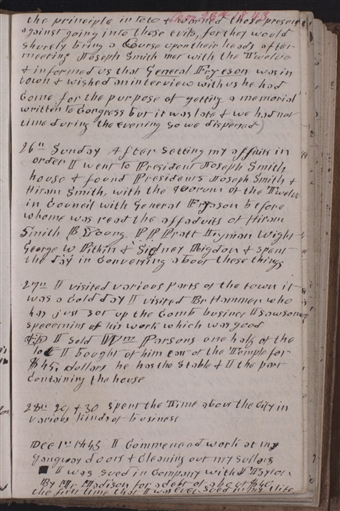 Nov 26th 1843
the principle in toto & warned those present
against going into these evils, for they would
shurely bring a Curse upon their heads after
meeting Joseph Smith met with the Twelve
& informed us that General Fryeson was in
town & wished an interview with us he had
come for the purpose of getting a memorial
written to Congress but it was late & we had not
time during the evening so we dispersed
26th Sunday After setting my affairs in
order I went to President Joseph Smith
house & found Presidents Joseph Smith &
Hiram Smith, with the Quorum of the Twelve
in Council with General Fryeson before
whome was read the affadvits of Hiram
Smith B Young. P P Pratt Lyman Wight
George W Pitkin & Sidney Rigdon & spent
the day in Conversing about these things
27th I visited various parts of the town it
was a Cold day I visited Br Hammer who
has just set up the Comb business I saw some
speceemens of his work which was good
I sold Wm Parsons one half of the
lot I bought of him east of the Temple for
dollars he has the stable & I the part
Containing the house
28th 29 & 30 spent the Time about the City in
various kinds of business
Dec 1st 1843 I Commenced work at my
doors & Cleaning out my sullars
I was sued in Company with J Taylor
By Mr Madison for a debt of about
the first time that I was ever sued in my life